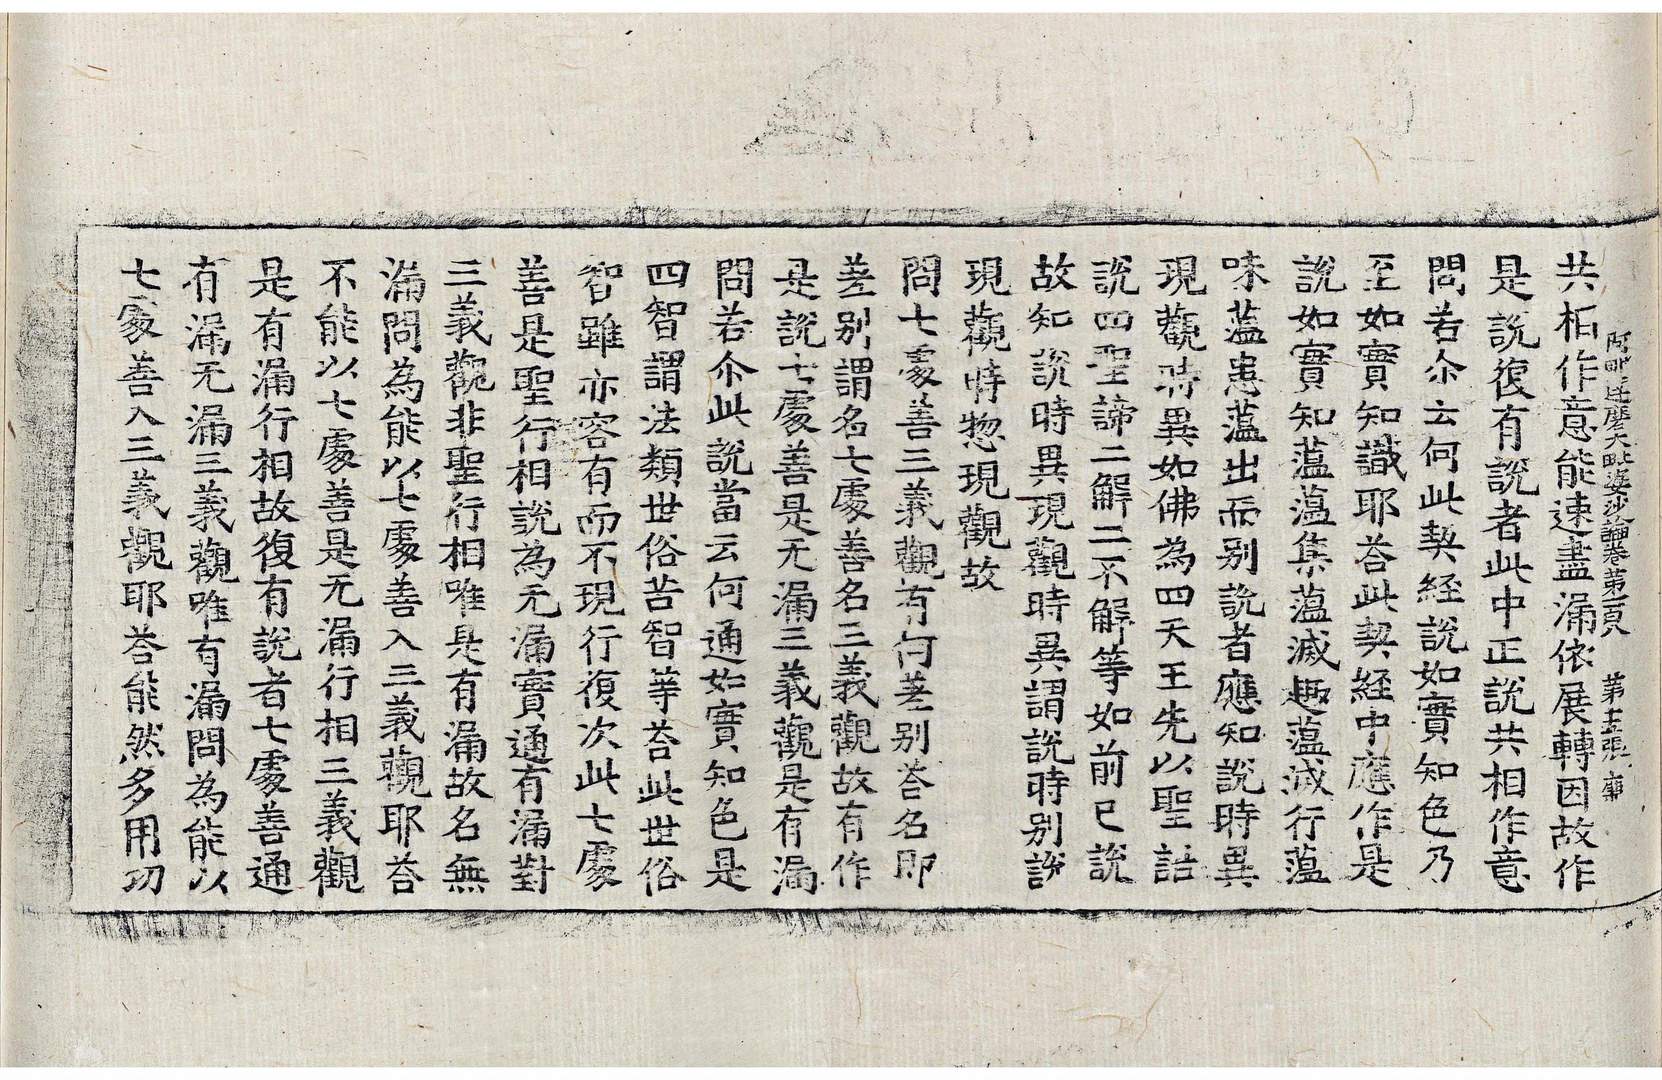 共相作意能速盡漏依展轉因故作
阿毗達磨大毗婆沙論卷第一百 第十五張 廟
是說復有說者此中正說共相作意
問若尒云何此契經說如實知色乃
至如實知識耶荅此契經中應作是
說如實知蘊蘊集蘊滅趣蘊滅行蘊
味蘊患蘊出而别說者應知說時異
現觀時異如佛為四天王先以聖語
說四聖諦二解二不解等如前已說
故知說時異現觀時異謂說時别說
現觀時惣現觀故
問七處善三義觀有何差别荅名即
差别謂名七處善名三義觀故有作
是說七處善是无漏三義觀是有漏
問若尒此說當云何通如實知色是
四智謂法類世俗苦智等荅此世俗
智雖亦容有而不現行復次此七處
善是聖行相說為无漏實通有漏對
三義觀非聖行相唯是有漏故名無
漏問為能以七處善入三義觀耶荅
不能以七處善是无漏行相三義觀
是有漏行相故復有說者七處善通
有漏无漏三義觀唯有漏問為能以
七處善入三義觀耶荅能然多用功